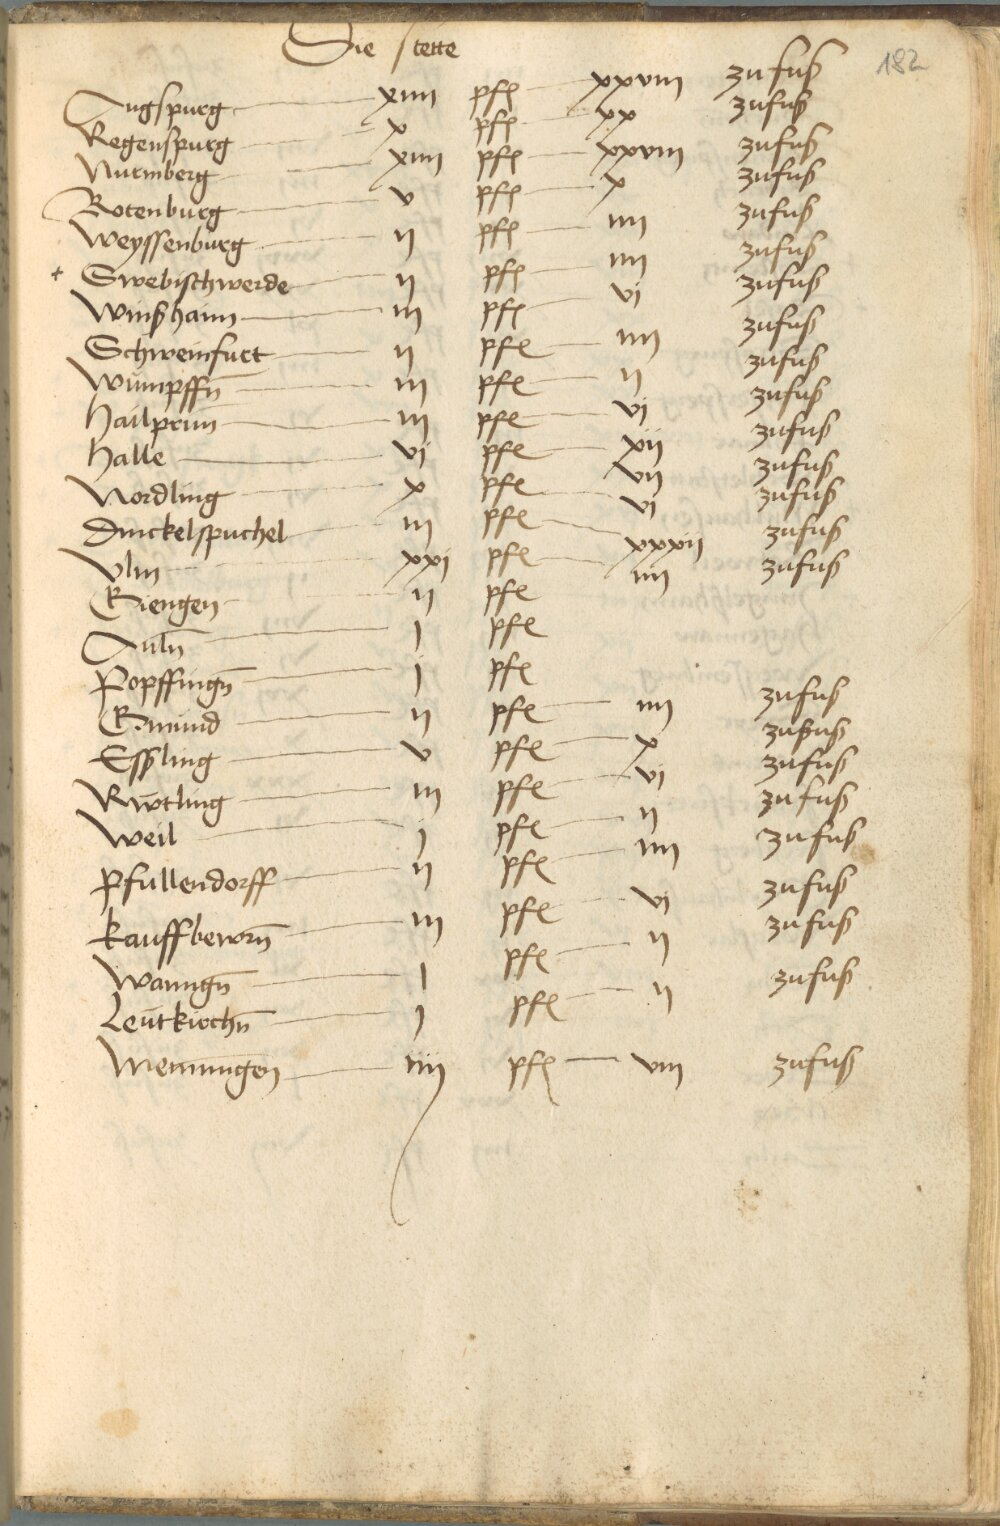 Die stette
182
Augspurg xiiii pfe xxviii zufuß
Regenspurg x pfe xx zufuß
Nurmberg xiiii pfe xxviii zufuß
Rotenburg v pfe x zufuß
Weyssenburg ii pfe iiii zufuß
+ Swebischwerde ii pfe iiii zufuß
Winßhaim iii pfe vi zufuß
Schweinfurt ii pfe iiii zufuß
Wumpffn̄ iii pfe ii zufuß
Hailprun iii pfe vi zufuß
Halle vi pfe xii zufuß
Nordling x pfe vii zufuß
Dinckelspuchel iii pfe vi zufuß
Vlm xxi pfe xxxii zufuß
Giengen ii pfe iiii zufuß
Auln̄ j pfe
Popffingn̄ j pfe
Gmünd ii pfe iiii zufuß
Essling v pfe x zufuß
Rwtling iii pfe vi zufuß
Weil j pfe ii zufuß
Pfullendorff ii pfe iiii zufuß
Kauffbewrn̄ iii pfe vi zufuß
Wanngn̄ j pfe ii zufuß
Leutkirchn̄ j pfe ii zufuß
Memmingen iiii pfe viii zufuß